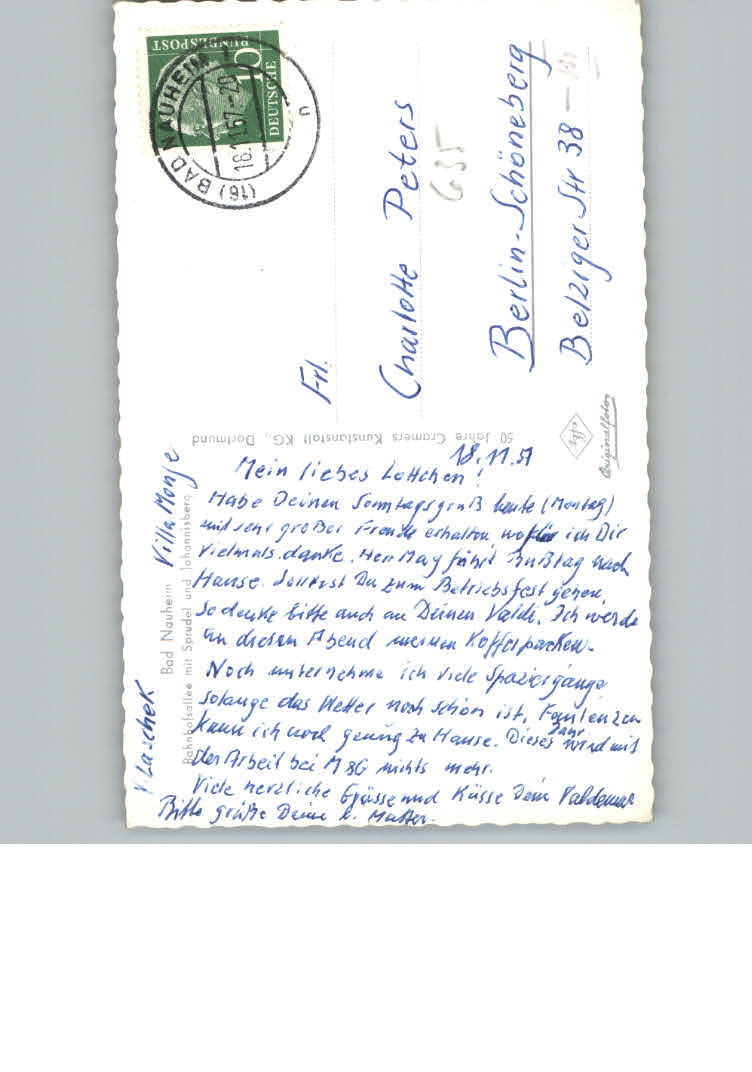 V. Laschek
Villa Monse
Bad Nauheim
Bahnhofsallee mit Sprudel und Johannisberg
18.11.57
Mein liebes Lottchen!
Habe Deinen Sonntagsgruß heute (Montag)
mit sehr großer Freude erhalten wofür ich Dir
vielmals danke. Herr May fährt Bußtag nach
Hause. Solltest Du zum Betriebsfest gehen,
so denke bitte auch an Deinen Valdi. Ich werde
an diesem Abend meinen Koffer packen.
Noch unternehme ich viele Spaziergänge
solange das Wetter noch schön ist. Faulenzen
kann ich noch genüg zu Hause. Dieses Jahr wird mit
der Arbeit bei M&G nichts mehr.
Viele herzliche Grüsse und Küsse Dein Valdemar
Bitte grüße Deine l. Mutter.
50 Jahre Cramers Kunstanstalt KG., Dortmund
Agfa
Originalfoto
DEUTSCHE
BUNDESPOST
10
(16) BAD NAUHEIM 1
18.11.57-20
n
Frl.
Charlotte Peters
G35
Berlin-Schöneberg
Belziger Str 38